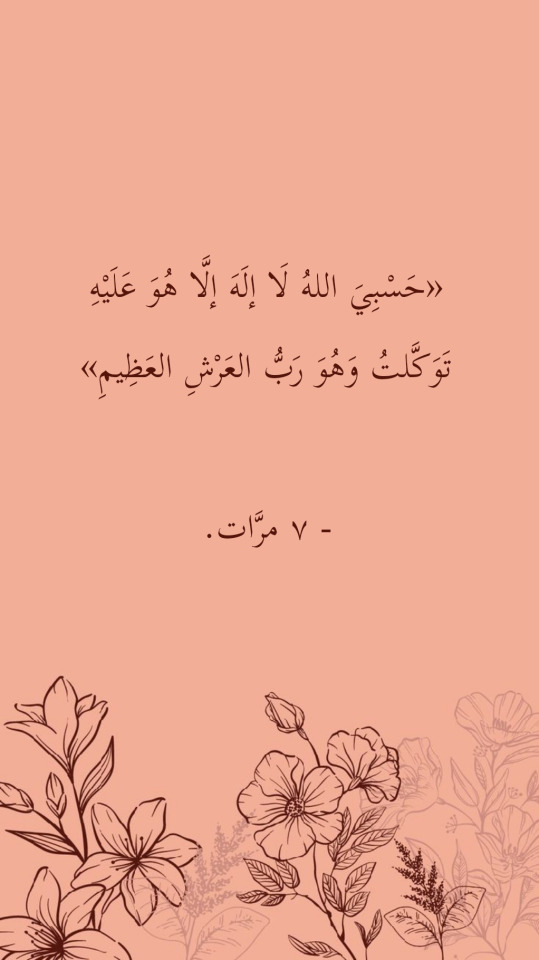 «حَسْبِيَ اللهُ لَا إلَهَ إلَّا هُوَ عَلَيْهِ
تَوَكَّلتُ وَهُوَ رَبُّ العَرْشِ العَظِيمِ»
- ٧ مرَّات.